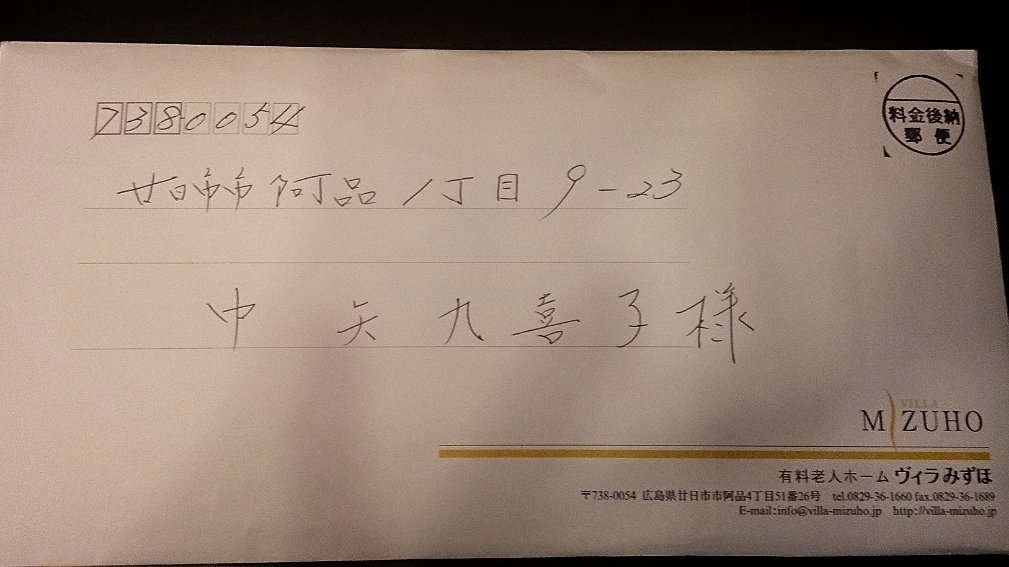 料金後納
郵便
7380054
廿日市市阿品1丁目9-23
中矢九喜子様
VILLA
MIZUHO
有料老人ホーム ヴィラみずほ
〒738-0054 広島県廿日市市阿品4丁目51番26号 tel.0829-36-1660 fax.0829-36-1689
E-mail:info@villa-mizuho.jp http://villa-mizuho.jp